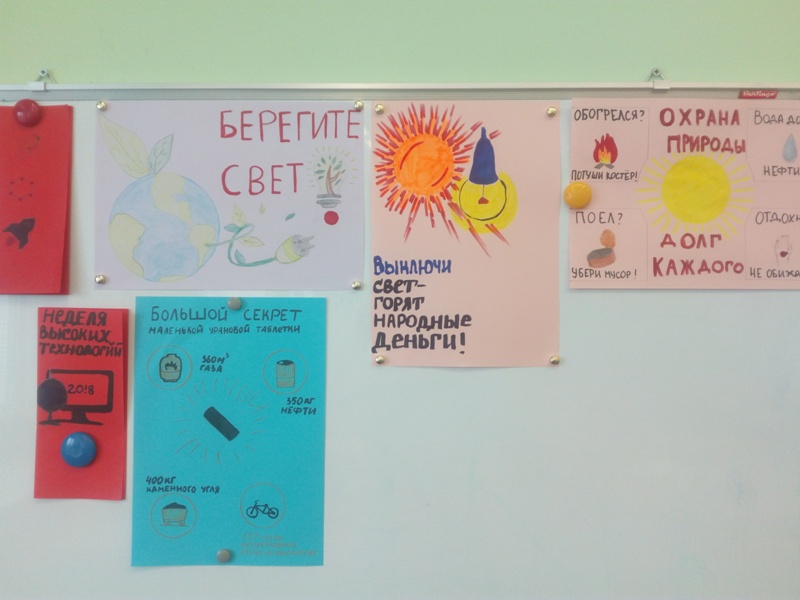 БЕРЕГИТЕ
СВЕТ
ВЫКЛЮЧИ
СВЕТ-
ГОРЯТ
НАРОДНЫЕ
ДЕНЬГИ!
ОБОГРЕЛСЯ?
ПОТУШИ КОСТЁР!
ПОЕЛ?
УБЕРИ МУСОР!
ОХРАНА
ПРИРОДЫ
ДОЛГ
КАЖДОГО
ВОДА
НЕФТИ
НЕ
НЕДЕЛЯ
ВЫСОКИХ
ТЕХНОЛОГИЙ
2018
БОЛЬШОЙ СЕКРЕТ
МАЛЕНЬКОЙ УРАНОВОЙ ТАБЛЕТКИ
360М³
ГАЗА
350КГ
НЕФТИ
400КГ
КАМЕННОГО УГЛЯ